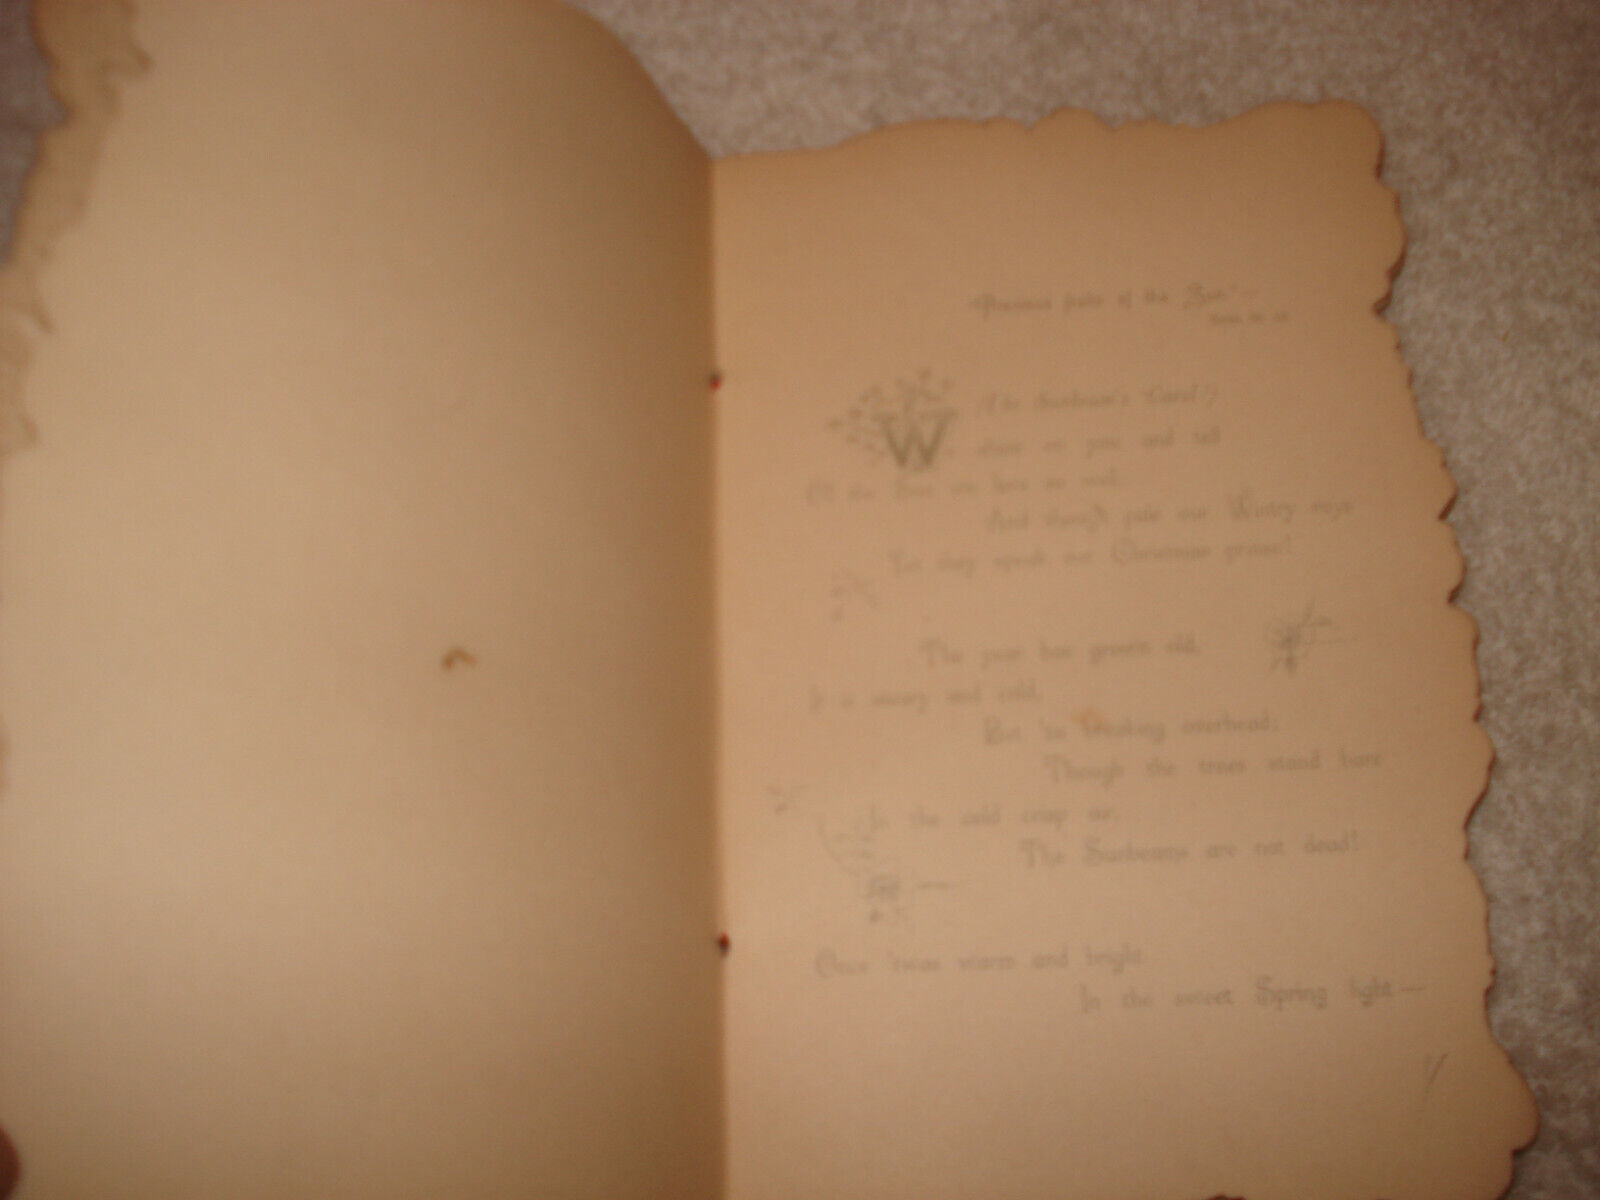 "Precious fruits of the Sun"—
(The Sunbeam's Carol.)
W shine on you and tell
Of the love we
And though pale our Wintry rays
Yet they speak our Christmas praise!
The year has grown old,
It is weary and cold,
But 'tis overhead;
Though the trees stand bare
In the cold crisp air,
The Sunbeams are not dead!
Once 'twas warm and bright
In the sweet Spring light—